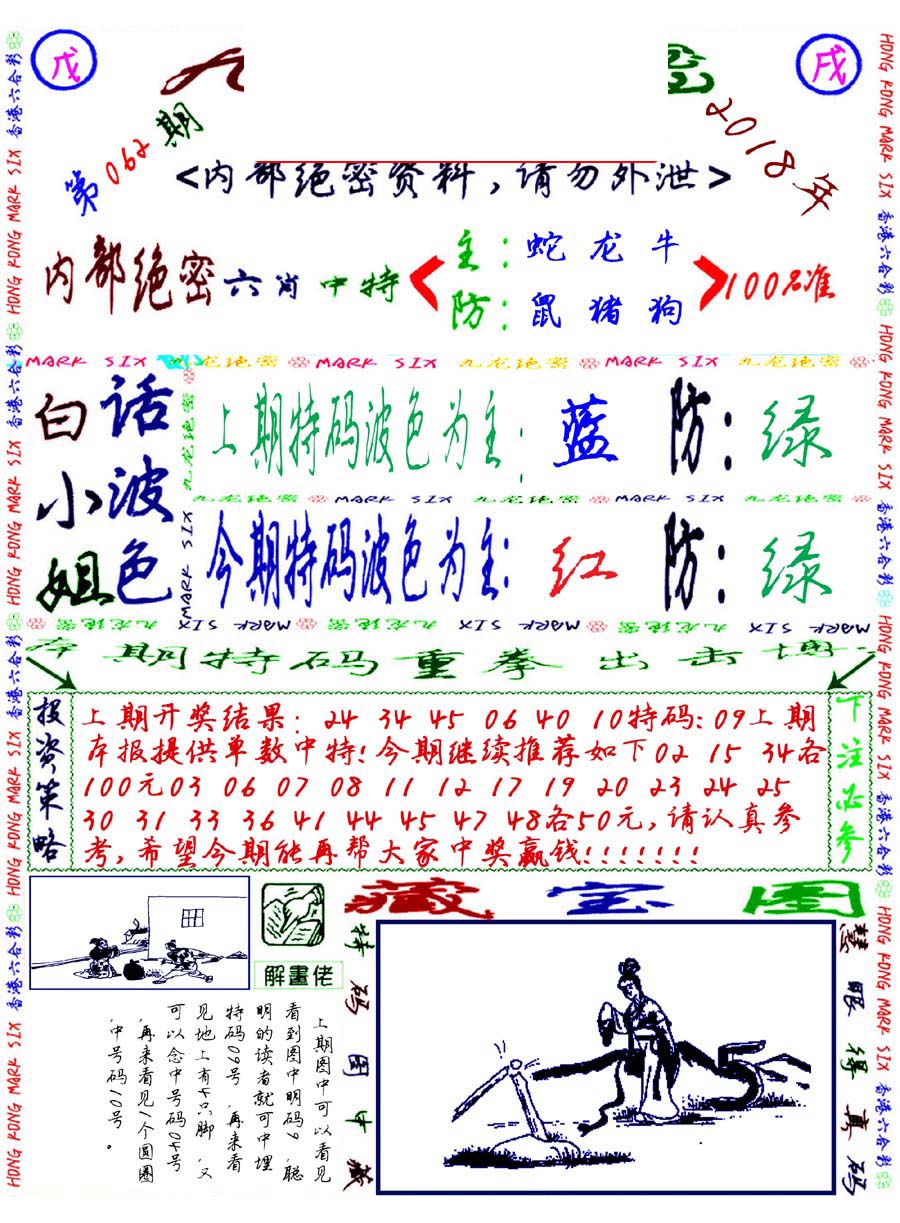 戊
戌
第062期
2018年
<内部绝密资料，请勿外泄>
内部绝密六肖中特
主：蛇龙牛
防：鼠猪狗
100%准
MARK SIX 九龙绝密 MARK SIX 九龙绝密 MARK SIX 九龙绝密
白小姐
话波色
上期特码波色为主：蓝 防：绿
九龙绝密 MARK SIX 九龙绝密 MARK SIX 九龙绝密
今期特码波色为主：红 防：绿
九龙绝密 MARK SIX 九龙绝密 MARK SIX 九龙绝密 MARK SIX
期特码重拳出击
投资策略
上期开奖结果：24 34 45 06 40 10特码：09上期
本报提供单数中特！今期继续推荐如下02 15 34各
100元03 06 07 08 11 12 17 19 20 23 24 25
30 31 33 36 41 44 45 47 48各50元，请认真参
考，希望今期能再帮大家中奖赢钱！！！！！！！
下注必参
解畫佬
藏宝图
上期图中可以看见
看到图中明码9，聪
明的读者就可中埋
特码09号，再来看
见地上有4只脚，又
可以念中号码04号
，再来看见1个圆圈
，中号码10号。
特码图中藏
慧眼得真码
HONG KONG MARK SIX 香港六合彩
HONG KONG MARK SIX 香港六合彩